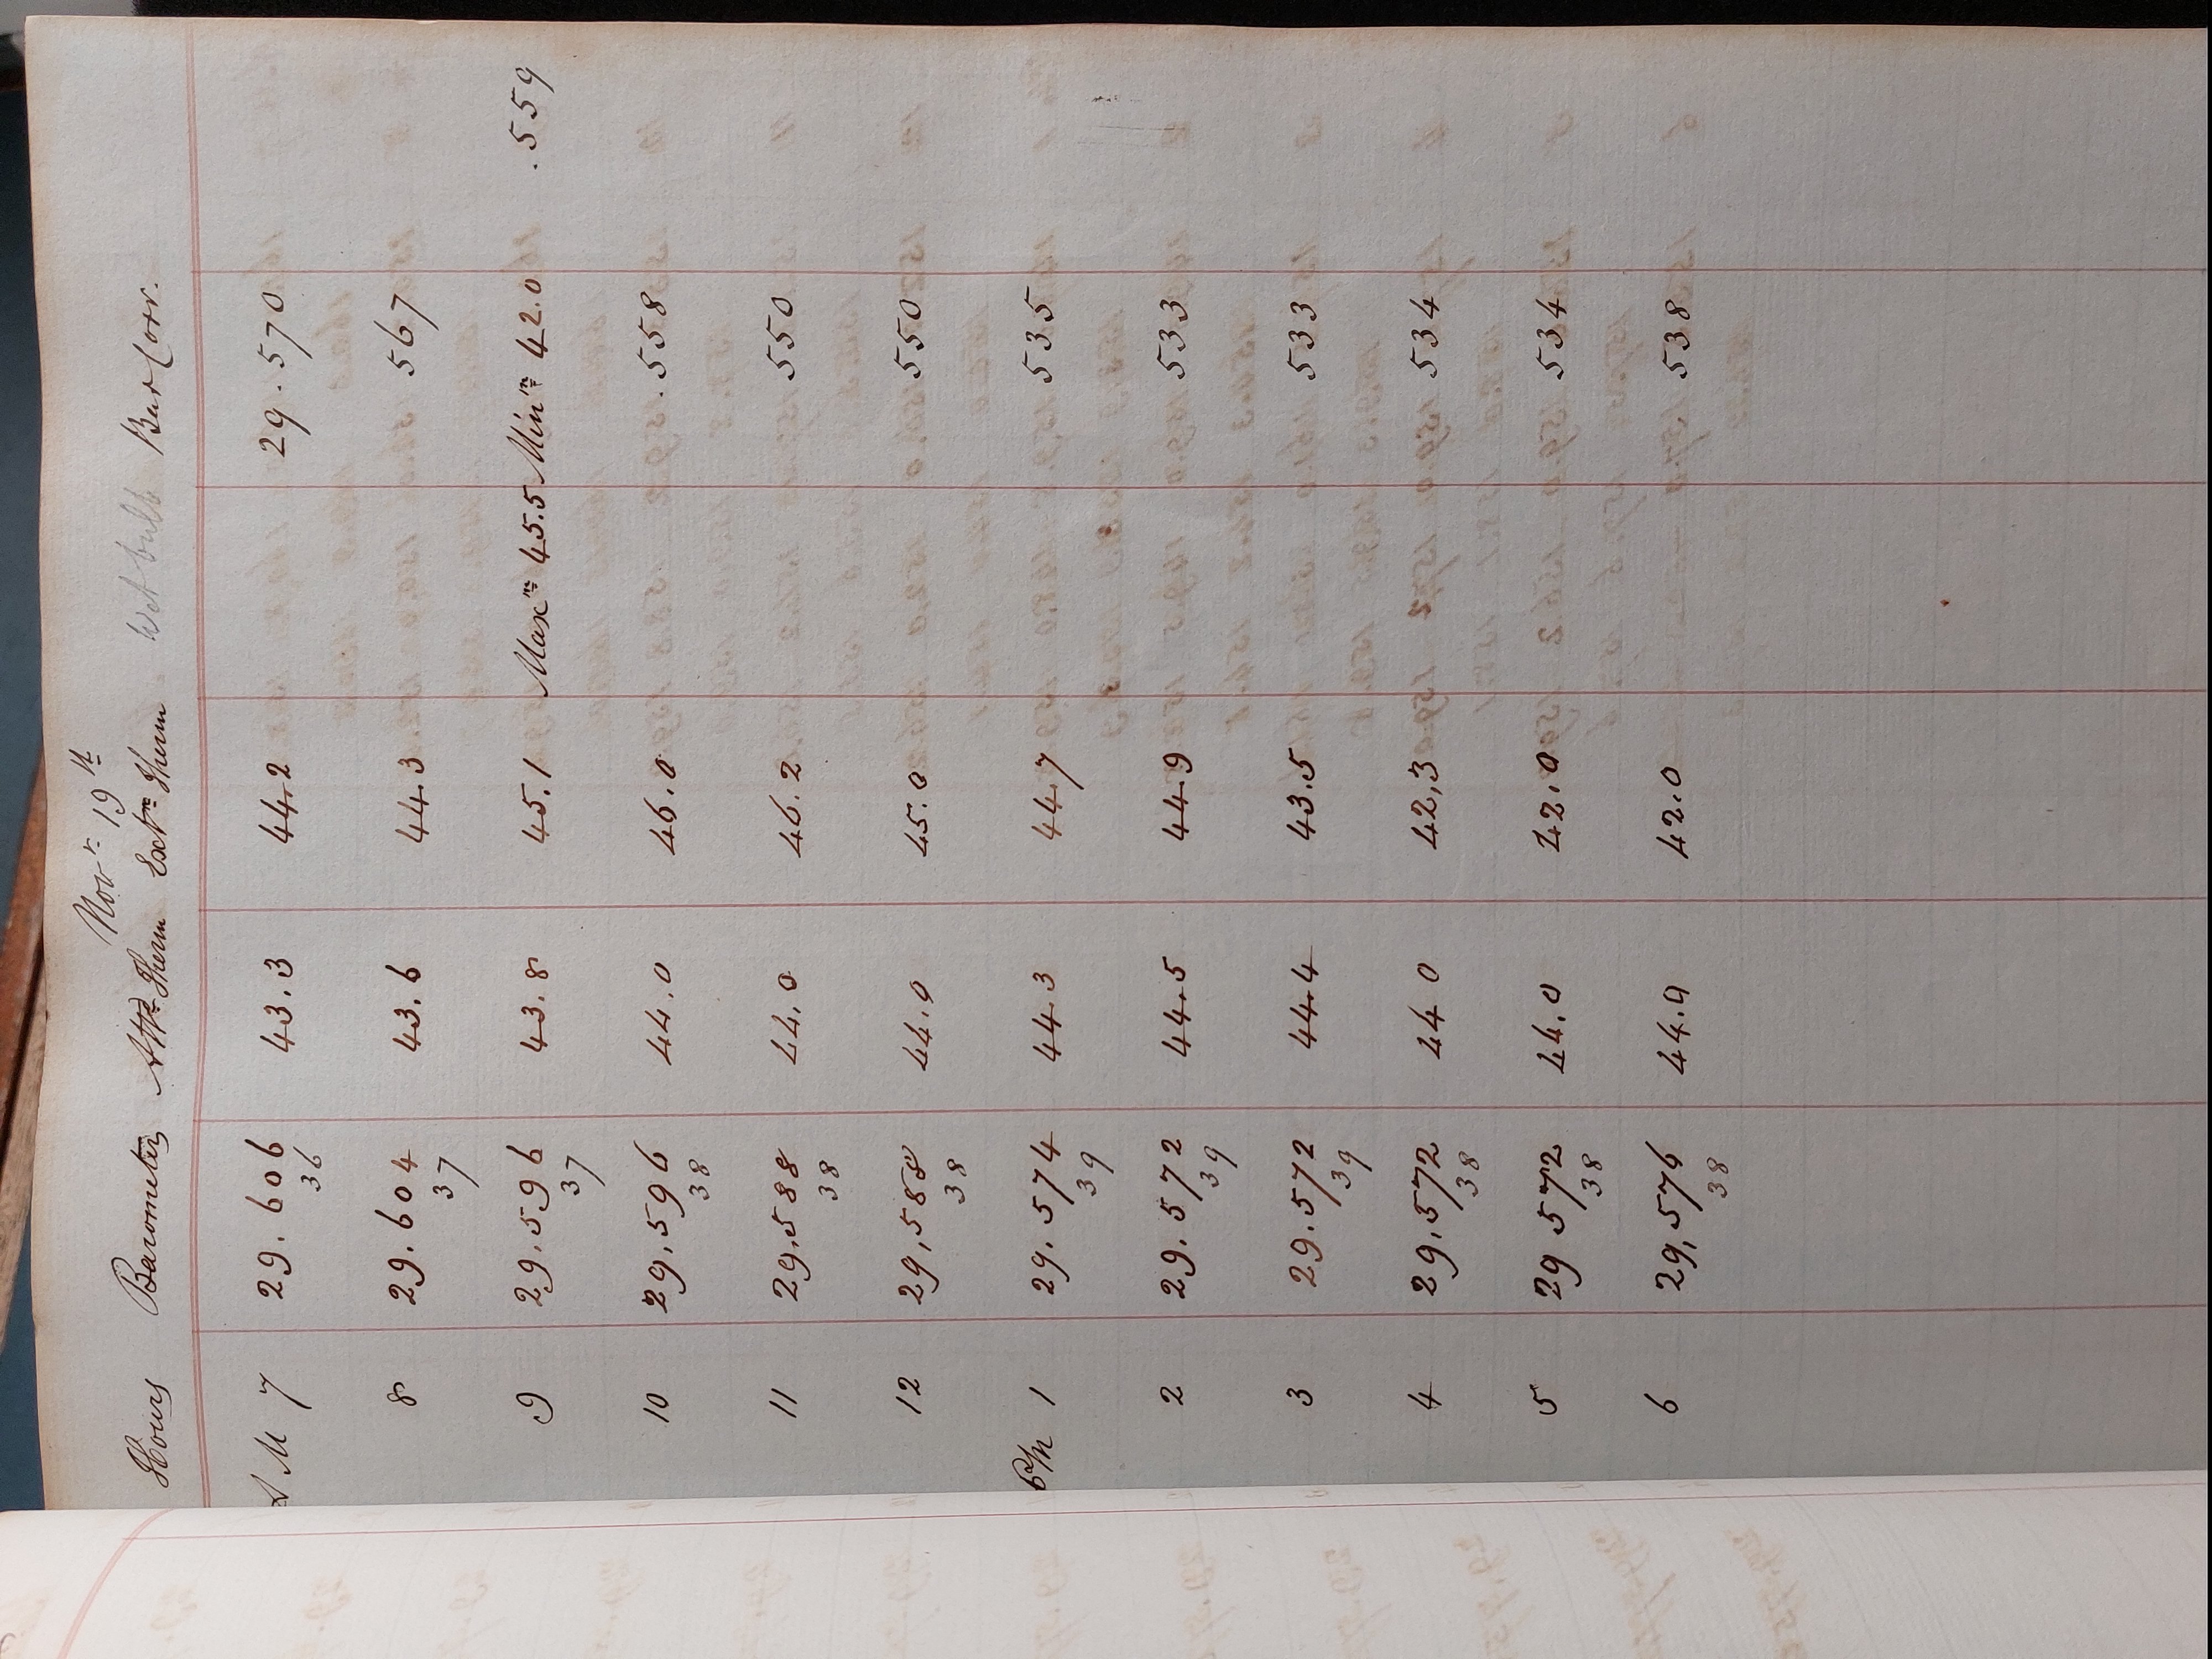 Novr 19th
Hours Barometer Attd Therm Extn Therm Wet bulb Bar Corr.
A M 7 29.606 43.3 44.2 29.570
36
8 29.604 43.6 44.3 567
37
9 29.596 43.8 45.1 Maxm 45.5 Minm 42.0 .559
37
10 29,596 44.0 46.0 .558
38
11 29,588 44,0 46.2 550
38
12 29,588 44.0 45.0 550
38
PM 1 29.574 44.3 44.7 535
39
2 29.572 44.5 44.9 533
39
3 29.572 44.4 43.5 533
39
4 29,572 44 0 42,3 534
38
5 29 572 44.0 42.0 534
38
6 29,576 44.0 42.0 538
38